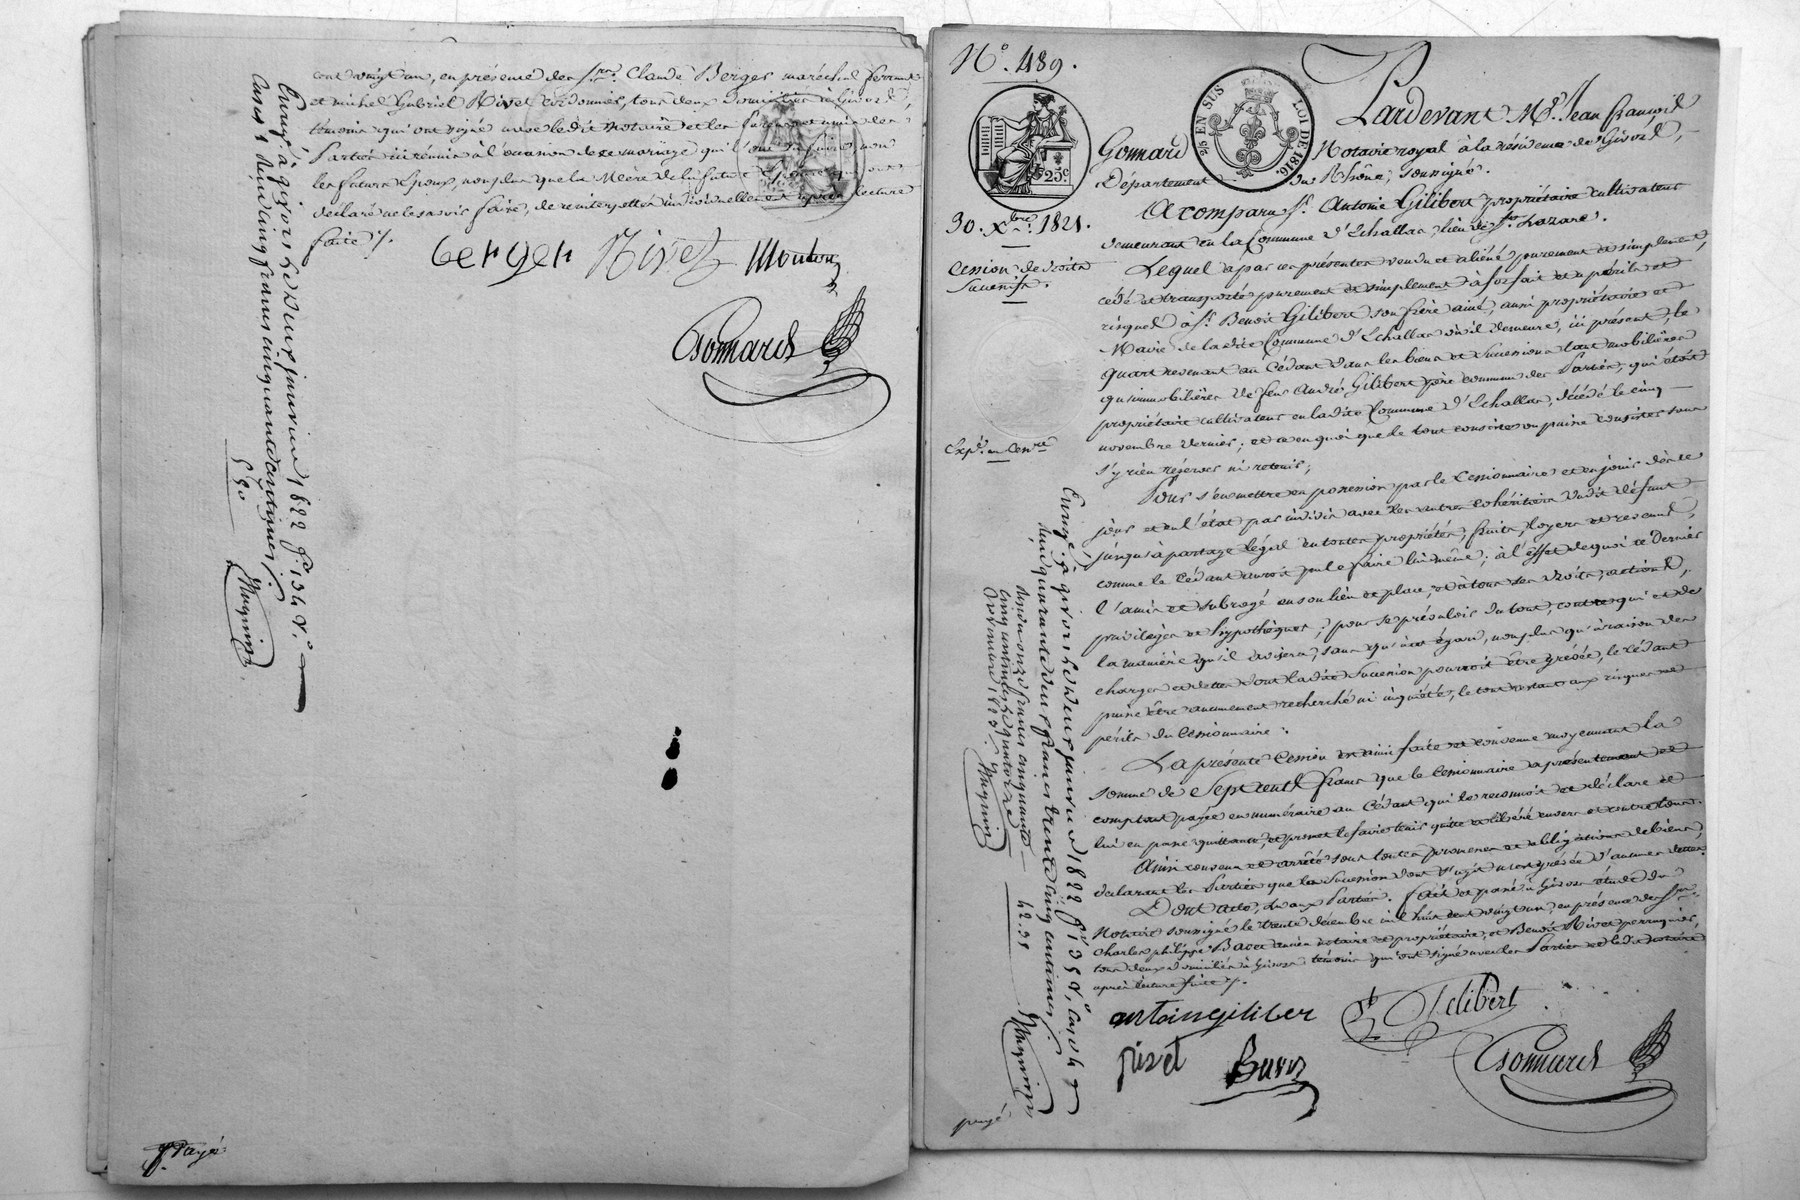 cent vingt un, en présence des Srs. Claude Berger maréchal ferrant
et Michel Gabriel Rivet cordonnier, tous deux domiciliés à Givors,
témoins qui ont signé avec ledit notaire et les parens et amis des
Parties ici réunis à l'occasion de ce mariage qui l'ont su faire, non
les futurs Epoux, non plus que la Mère de la future Epouse qui ont
déclaré ne le savoir faire, de ce interpellés individuellement après lecture
faite ./.
berger Rivet Mouton
Gonnard
Enreg. à givors le deux janvier 1822 fo. 134 vo.
Case 1 deux cinq francs cinquante centimes ./.
5 50
Magnin
payé
No. 489.
25c
2/5 EN SUS LOI DE 1816
30. Xbre. 1821.
Cession de droits
Successifs.
Expé. en Cenre
Pardevant Me. Jean François
Gonnard Notaire royal à la résidence de Givors,
Département du Rhône, soussigné.
A comparu Sr. Antoine Gilibert propriétaire cultivateur
demeurant en la Commune d'Echallas, lieu de St. Lazare.
Lequel a par ces présentes vendu et aliéné purement et simplement,
cédé et transporté purement et simplement à forfait et à périls et
risques à Sr. Benoit Gilibert son frère ainé, aussi propriétaire et
Maire de ladite Commune d'Echallas où il demeure, ici présent, le
quart revenant au Cédant dans les biens et Successions tant mobilières
qu'immobilières de feu André Gilibert père commun des Parties, qui étoit
propriétaire cultivateur en ladite Commune d'Echallas, décédé le cinq
novembre dernier; et ce en quoi que le tout consiste ou puisse consister sans
s'y rien réserver ni retenir;
Pour s'en mettre en possession par le Cessionnaire et en jouir dès ce
jour et en l'état par indivis avec les autres cohéritiers dudit défunt
jusqu'à partage légal en toutes propriétés, fruits, loyers et revenus,
comme le Cédant auroit pu le faire lui même; à l'effet de quoi ce dernier
l'a mis et subrogé en son lieu et place, et à tous ses droits, actions,
privilèges et hypothèques; pour se prévaloir du tout, contre qui et de
la manière qu'il avisera, sans qu'à cet égard, non plus qu'à raison des
charges et dettes dont ladite Succession pourroit être grévée, le cédant
puisse être aucunement recherché ni inquiété, le tout restant aux risques et
périls du Cessionnaire.
La présente Cession est ainsi faite et convenue moyennant la
somme de Sept cents francs que le Cessionnaire a présentement et
comptant payée en numéraire au Cédant qui le reconnoit et déclare et
lui en passe quittance, et promet le faire tenir quitte et libéré envers et contre tous.
Ainsi convenu et arrêté sous toutes promesses et obligations de biens,
déclarant les Parties que la Succession dont s'agit n'est grévée d'aucunes dettes.
Dont acte, lu aux Parties. Fait et passé à Givors étude du
Notaire soussigné le trente décembre mil huit cent vingt un, en présence des Srs.
Charles philippe ancien notaire et propriétaire, et Benoit Rivet perruquier,
tous deux domiciliés à Givors témoins qui ont signé avec les Parties et ledit notaire
après lecture faite ./.
Enregé. à givors le deux janvier 1822 fo. 135 vo. Case 4
quarante deux francs trente cinq centimes ./.
42.35
Magnin
antoine giliber Bt Gilibert
rivet Gonnard
payé